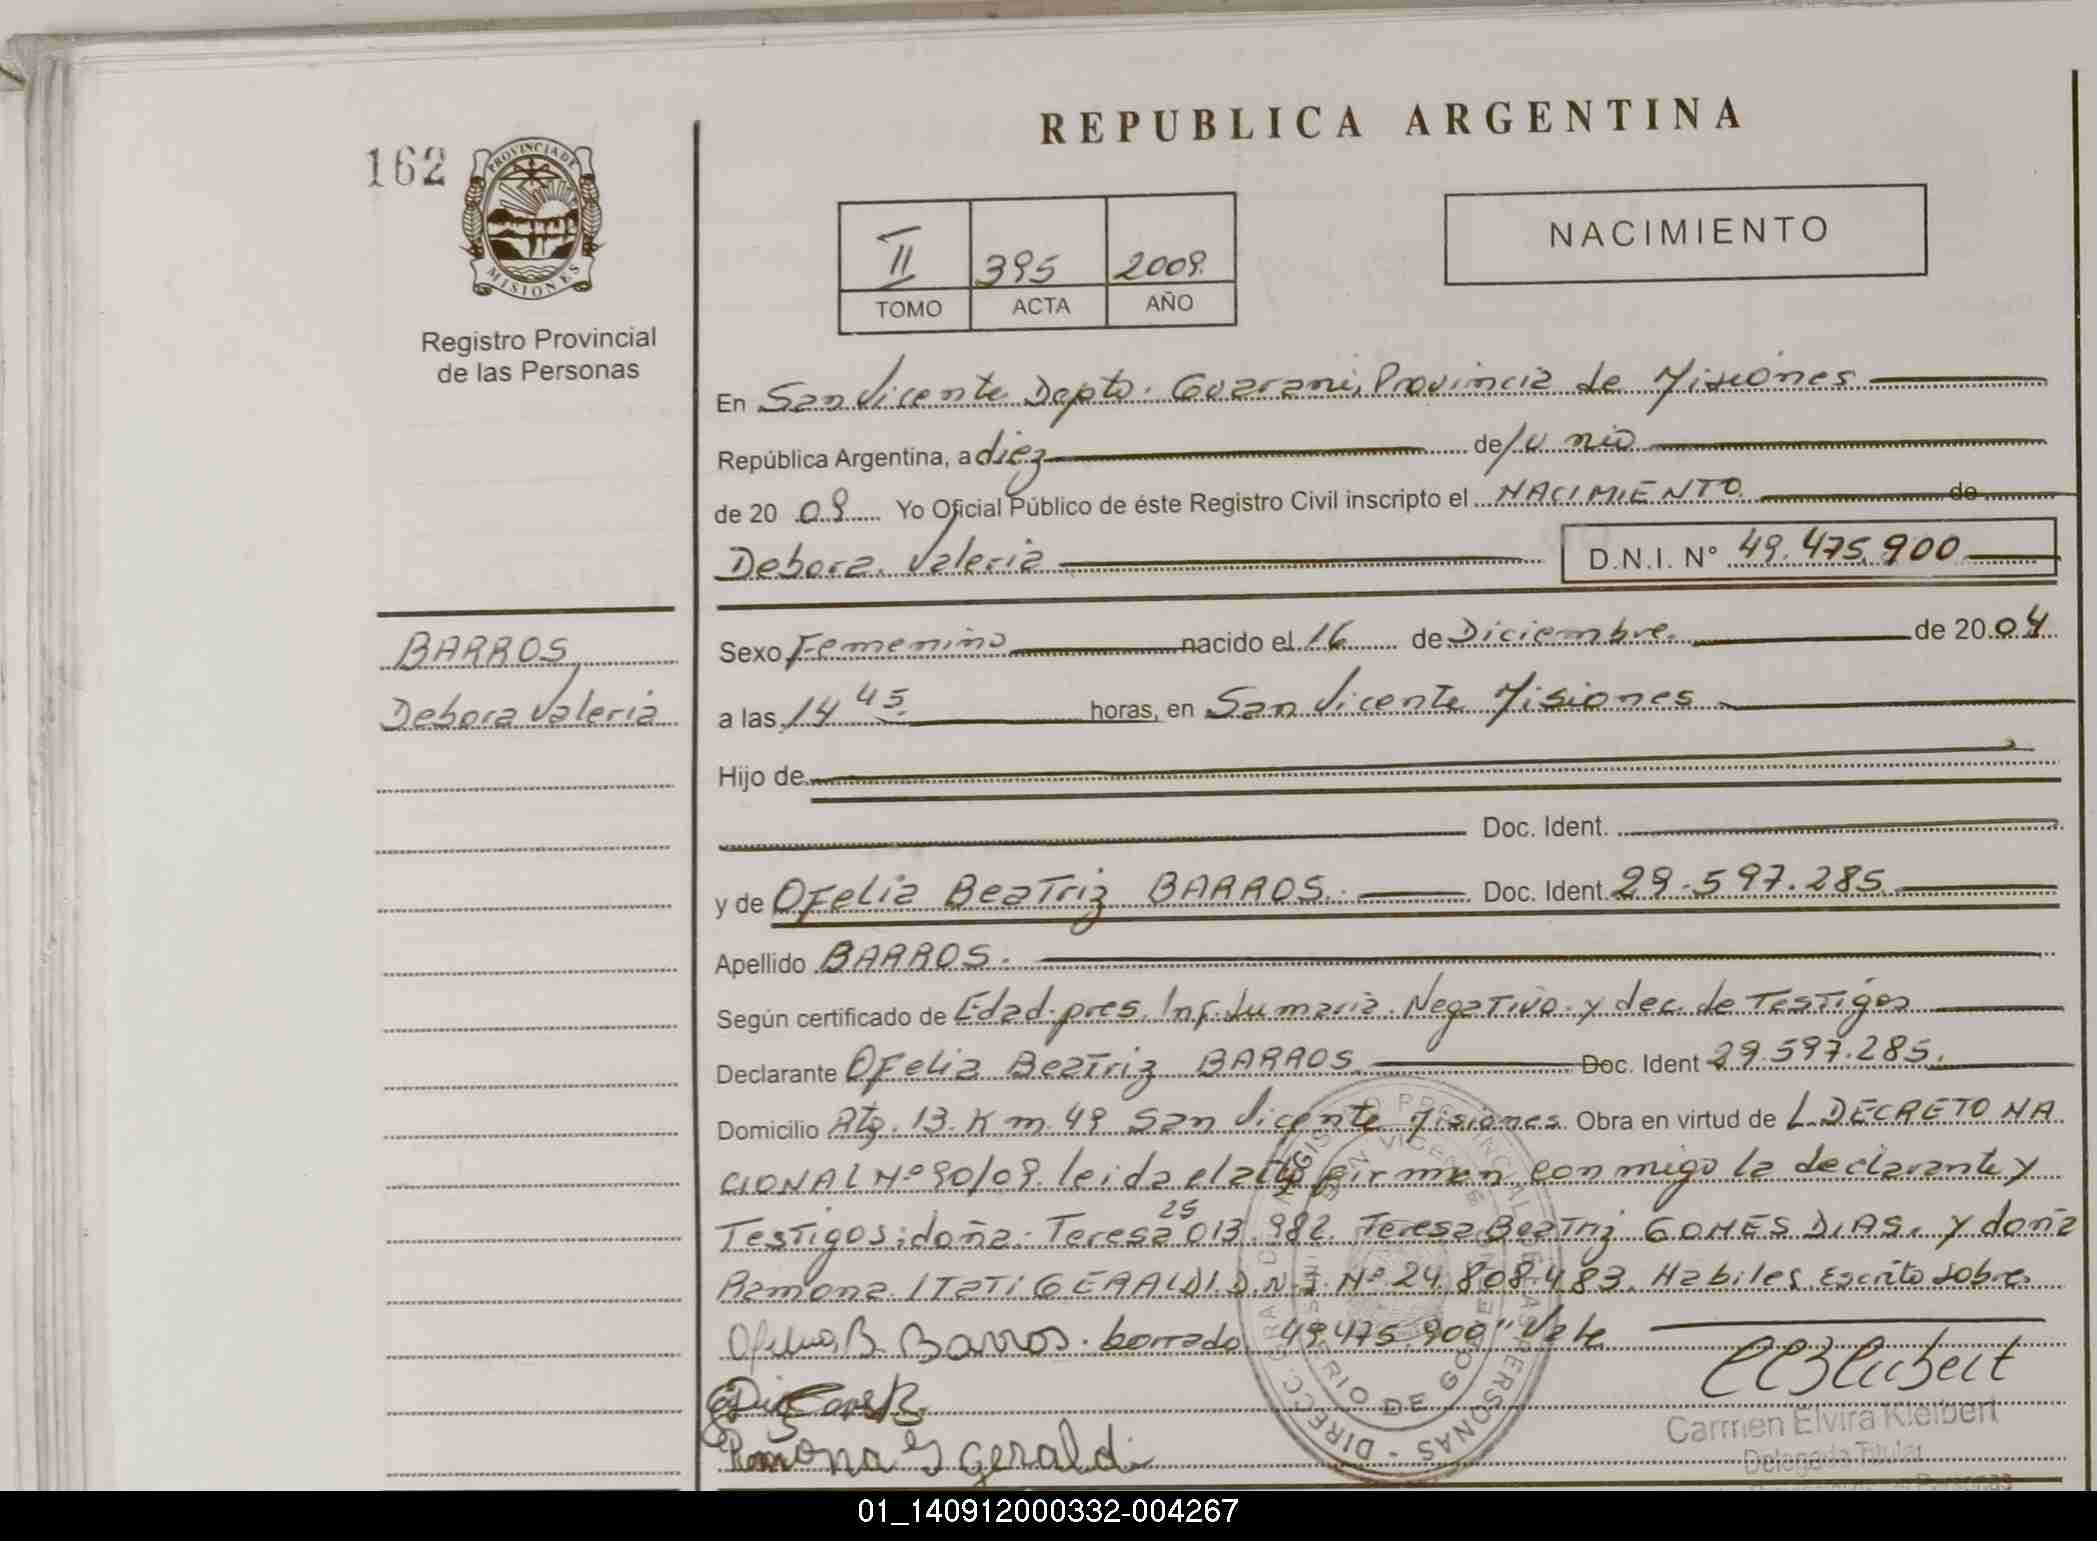 REPUBLICA ARGENTINA
162
PROVINCIA DE
MISIONES
Registro Provincial
de las Personas
II 395 2009
TOMO ACTA AÑO
NACIMIENTO
En San Vicente Depto. Guarani, Provincia de Misiones
República Argentina, a diez de Junio
de 20 09 Yo Oficial Público de éste Registro Civil inscripto el NACIMIENTO de
Debora Valeria D.N.I. N° 49.475.900
BARROS
Debora Valeria
Sexo Femenino nacido el 16 de Diciembre de 20 04
a las 14 45 horas, en San Vicente Misiones
Hijo de
Doc. Ident.
y de OFelia BeaTriz BARROS. Doc. Ident. 29.597.285
Apellido BARROS.
Según certificado de Edad pres. Inf. Sumaria Negativo y dec. de Testigos
Declarante OFelia BeaTriz BARROS. Doc. Ident 29.597.285.
Domicilio Rta. 13. Km. 49 San Vicente Misiones. Obra en virtud de L DECRETO NA
CIONAL Nº 90/09. leida el acta firman conmigo la declarante y
Testigos: doña: Teresa 25 013.982. Teresa Beatriz GOMES DIAS. y doña
Ramona ITATI GERALDI. D.N.I. Nº 24.808.483. Habiles. Escrito sobre
Ofelia B. Barros. borrado 49.475.900" Vale
Ramona I geraldi
Carmen Elvira Kleibert
Delegada Titular
01_140912000332-004267